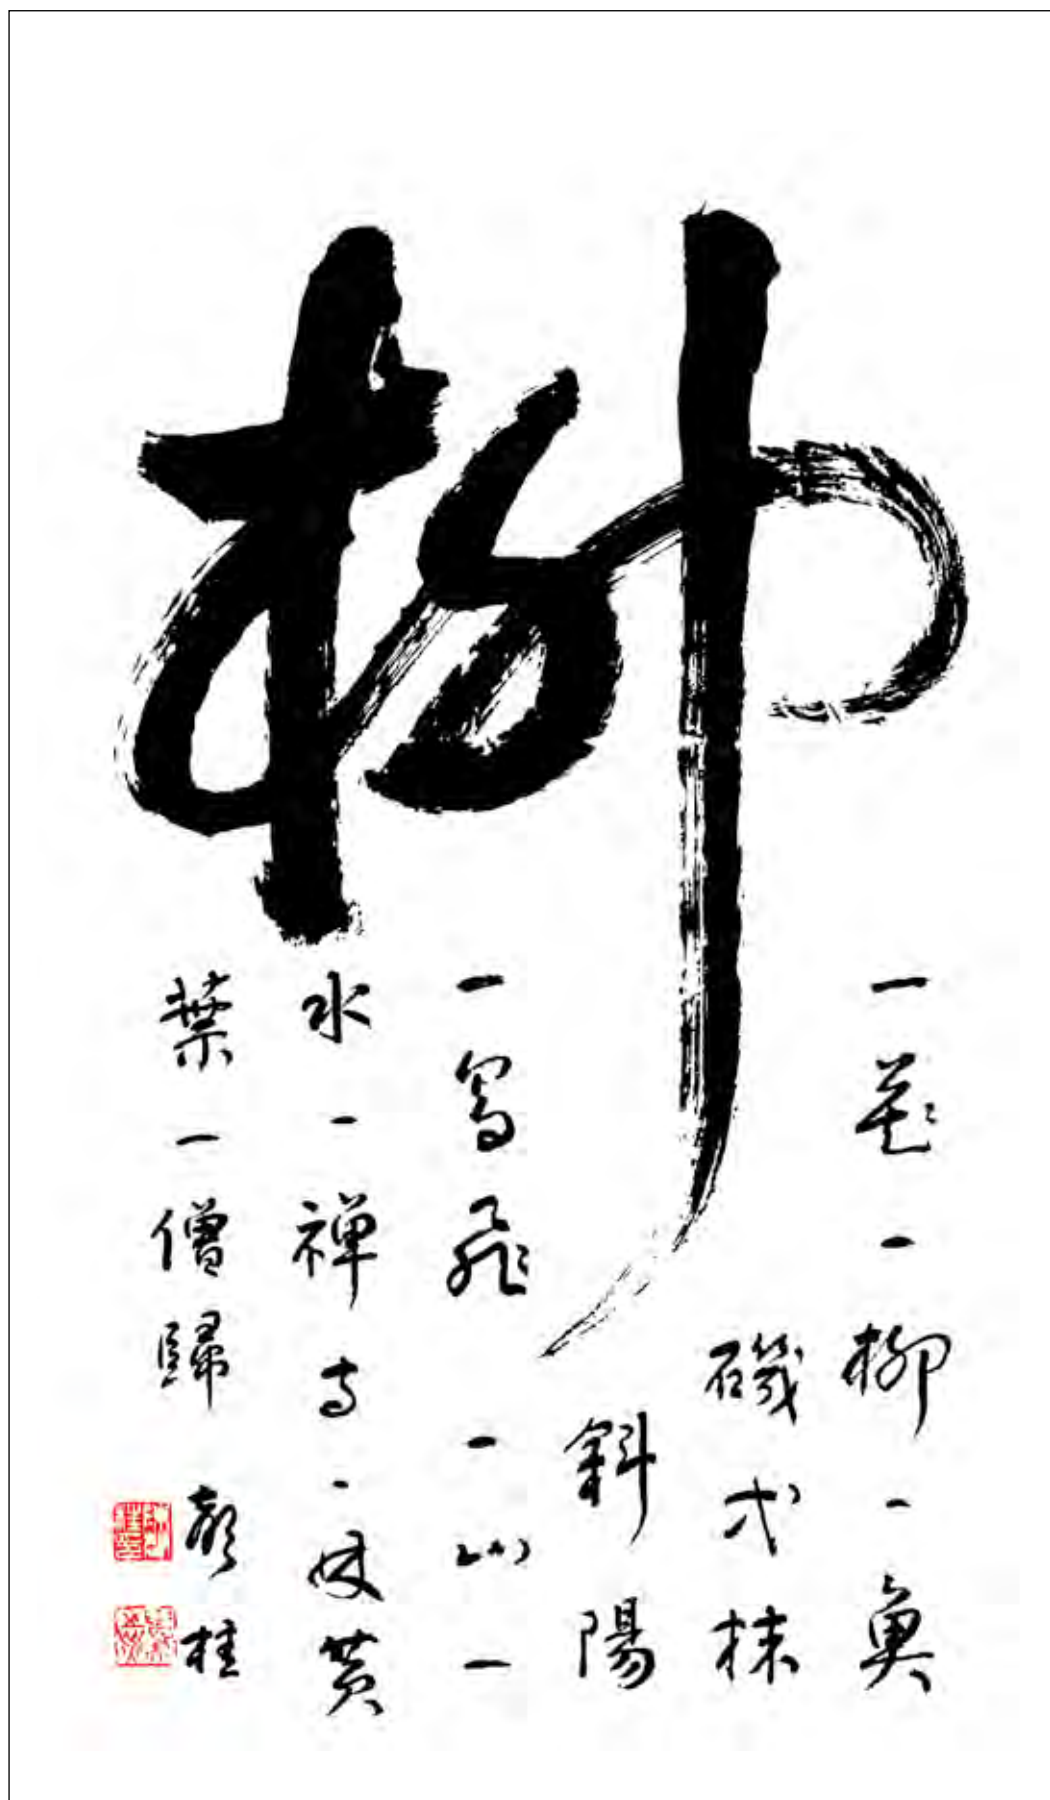 柳
一花一柳一魚
磯弌抹
斜陽
一鳥飛一山一
水一禅寺一林黄
葉一僧歸
桂